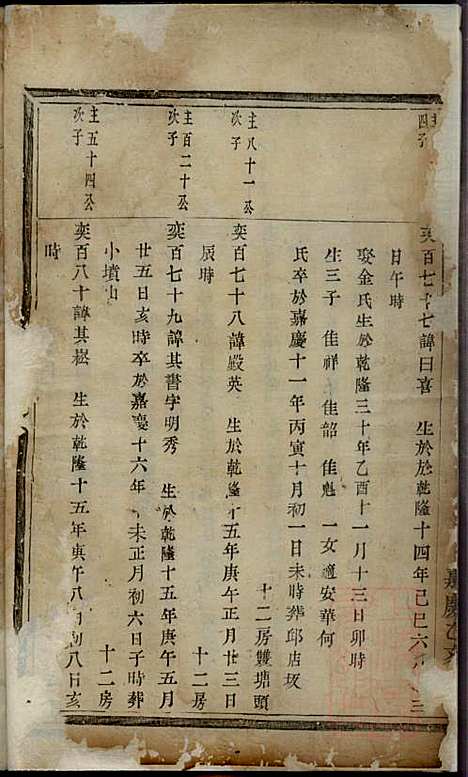 四子
奕百七十七諱日喜 生於於乾隆十四年己巳六月 三
日午時
娶金氏生於乾隆三十年乙酉十一月十三日卯時
生三子 佳祥 佳韶 佳魁 一女適安華何
氏卒於嘉慶十一年丙寅十月初一日未時葬邱店坂
十二房雙塘頭
主八十一公
次子
奕百七十八諱殿英 生於乾隆十五年庚午正月廿三日
辰時
十二房
主百二十公
次子
奕百七十九諱其書字明秀 生於乾隆十五年庚午五月
廿五日亥時卒於嘉慶十六年 未正月初六日子時葬
小墳山
十二房
主五十四公
次子
奕百八十諱其崧 生於乾隆十五年庚午八月初八日亥
時
嘉慶乙亥